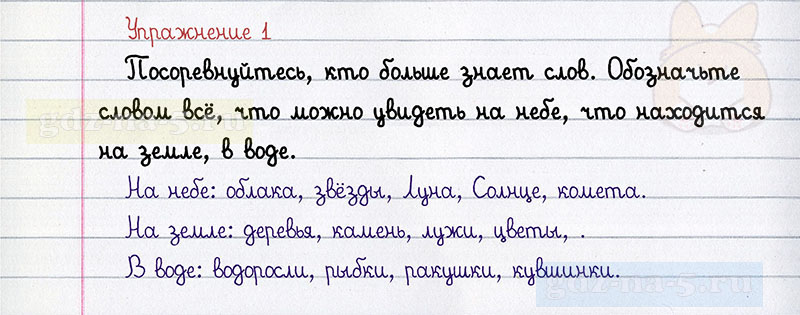 Упражнение 1
Посоревнуйтесь, кто больше знает слов. Обозначьте
словом всё, что можно увидеть на небе, что находится
на земле, в воде.
На небе: облака, звёзды, Луна, Солнце, комета.
На земле: деревья, камень, лужи, цветы, .
В воде: водоросли, рыбки, ракушки, кувшинки.
gdz-na-5.ru
gdz-na-5.ru